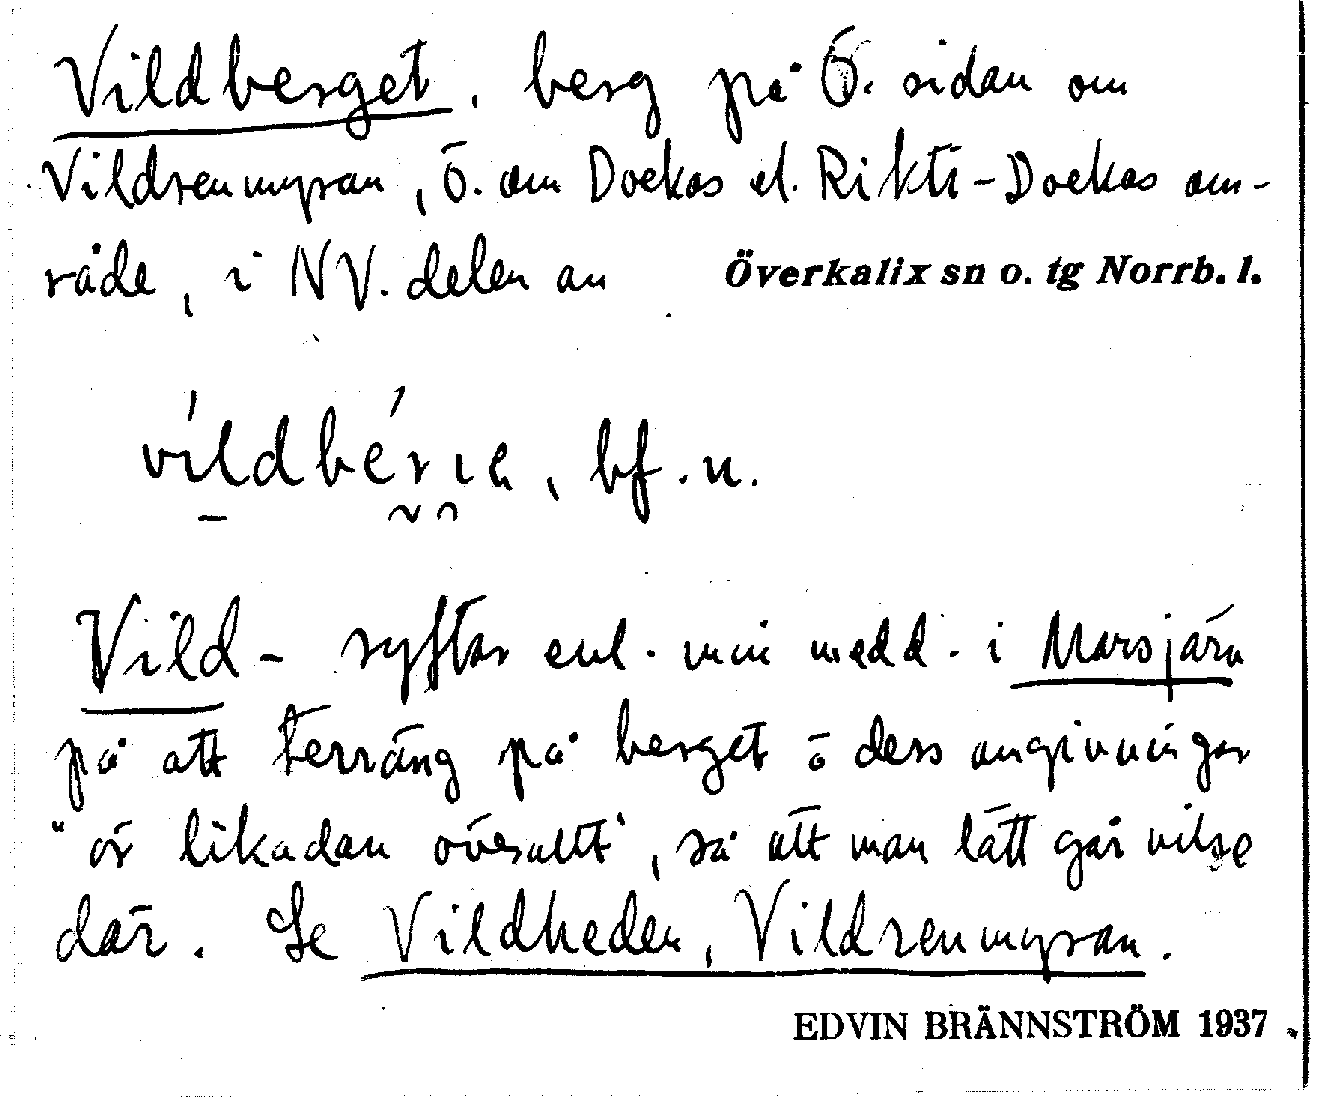 Vildberget, berg på Ö. sidan om
Vildrenmyran, ö. om Dockas el. Rikti-Dockas om-
råde, i NV. delen av Överkalix sn o. tg Norrb. l.
bf. n.
Vild- syftar enl. min medd. i Marsjärv
på att terräng på berget o dess omgivningar
"är likadan överallt", så att man lätt går vilse
där. Se Vildheden, Vildrenmyran.
EDVIN BRÄNNSTRÖM 1937